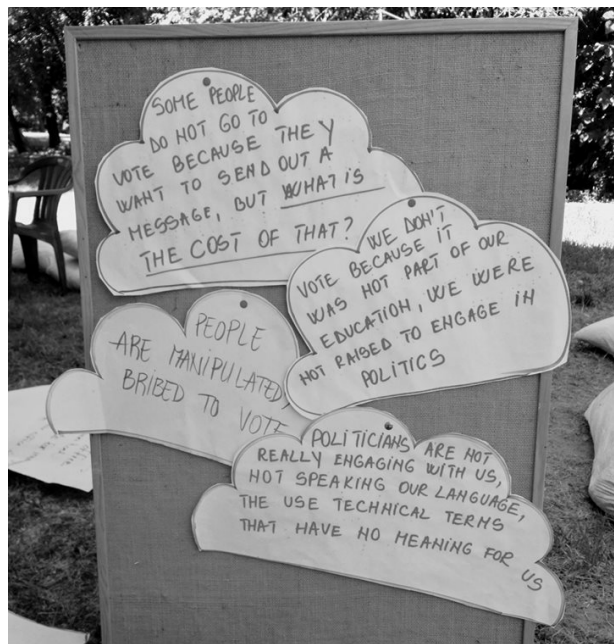 SOME PEOPLE
DO NOT GO TO
VOTE BECAUSE THEY
WANT TO SEND OUT A
MESSAGE, BUT WHAT IS
THE COST OF THAT?
WE DON'T
VOTE BECAUSE IT
WAS NOT PART OF OUR
EDUCATION, WE WERE
NOT RAISED TO ENGAGE IN
POLITICS
PEOPLE
ARE MANIPULATED,
BRIBED TO VOTE
POLITICIANS ARE NOT
REALLY ENGAGING WITH US,
NOT SPEAKING OUR LANGUAGE,
THE USE TECHNICAL TERMS
THAT HAVE NO MEANING FOR US